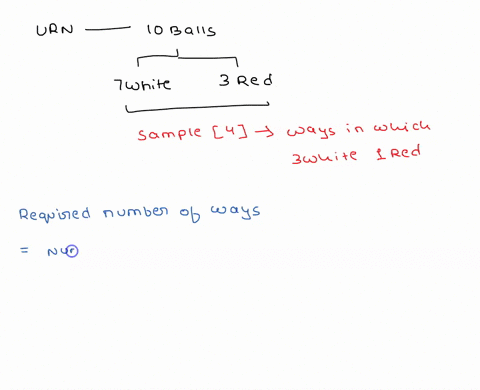 URN — 10 Balls
7 White 3 Red
Sample [4] → ways in which
3 White 1 Red
Required number of ways
= Nu